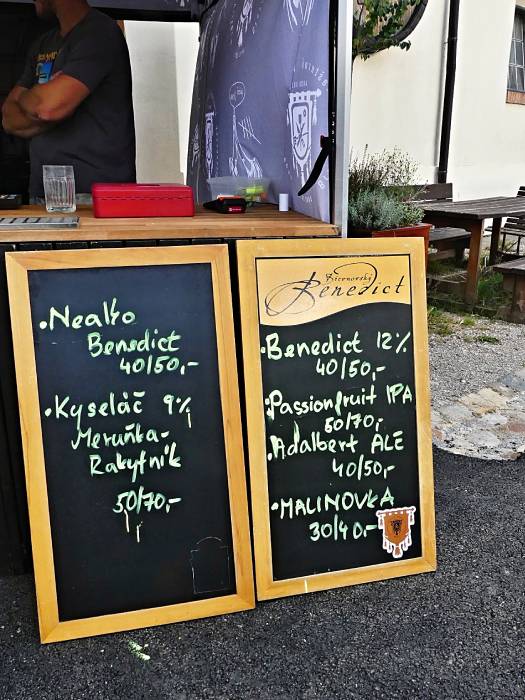 •Nealko
Benedict
40/50,-
•Kyseláč 9%
Meruňka-
Rakytník
50/70,-
Břevnovský
Benedict
•Benedict 12%
40/50,-
•Passionfruit IPA
50/70,-
•Adalbert ALE
40/50,-
•MALINOVKA
30/40,-